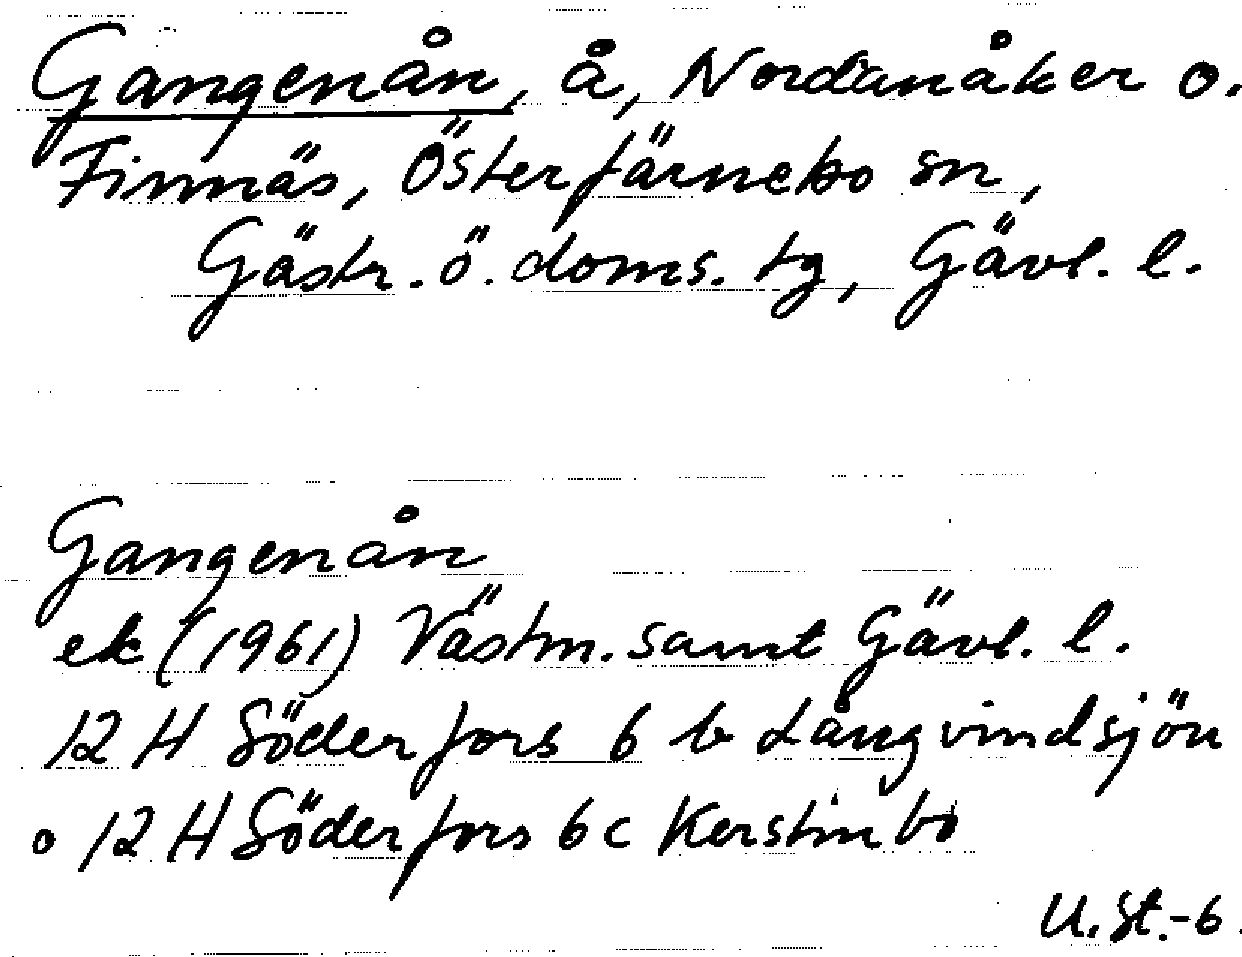 Gangenån, å, Nordanåker o.
Finnäs, Österfärnebo sn,
Gästr. ö. doms. tg, Gävl. l.
Gangenån
ek (1961) Västm. samt Gävl. l.
12 H Söderfors 6 b Långvindsjön
o 12 H Söderfors 6 c Kerstinbo
U. St.-6